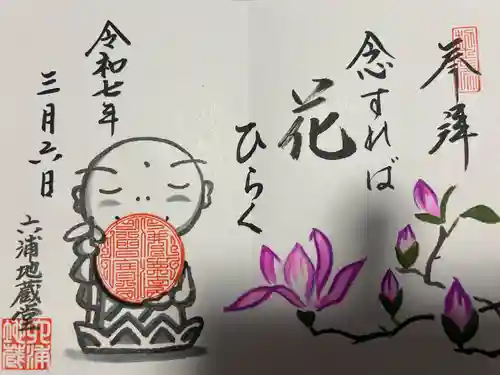 奉拝
念ずれば
花
ひらく
令和七年
三月六日
六浦地蔵堂
六浦
地蔵